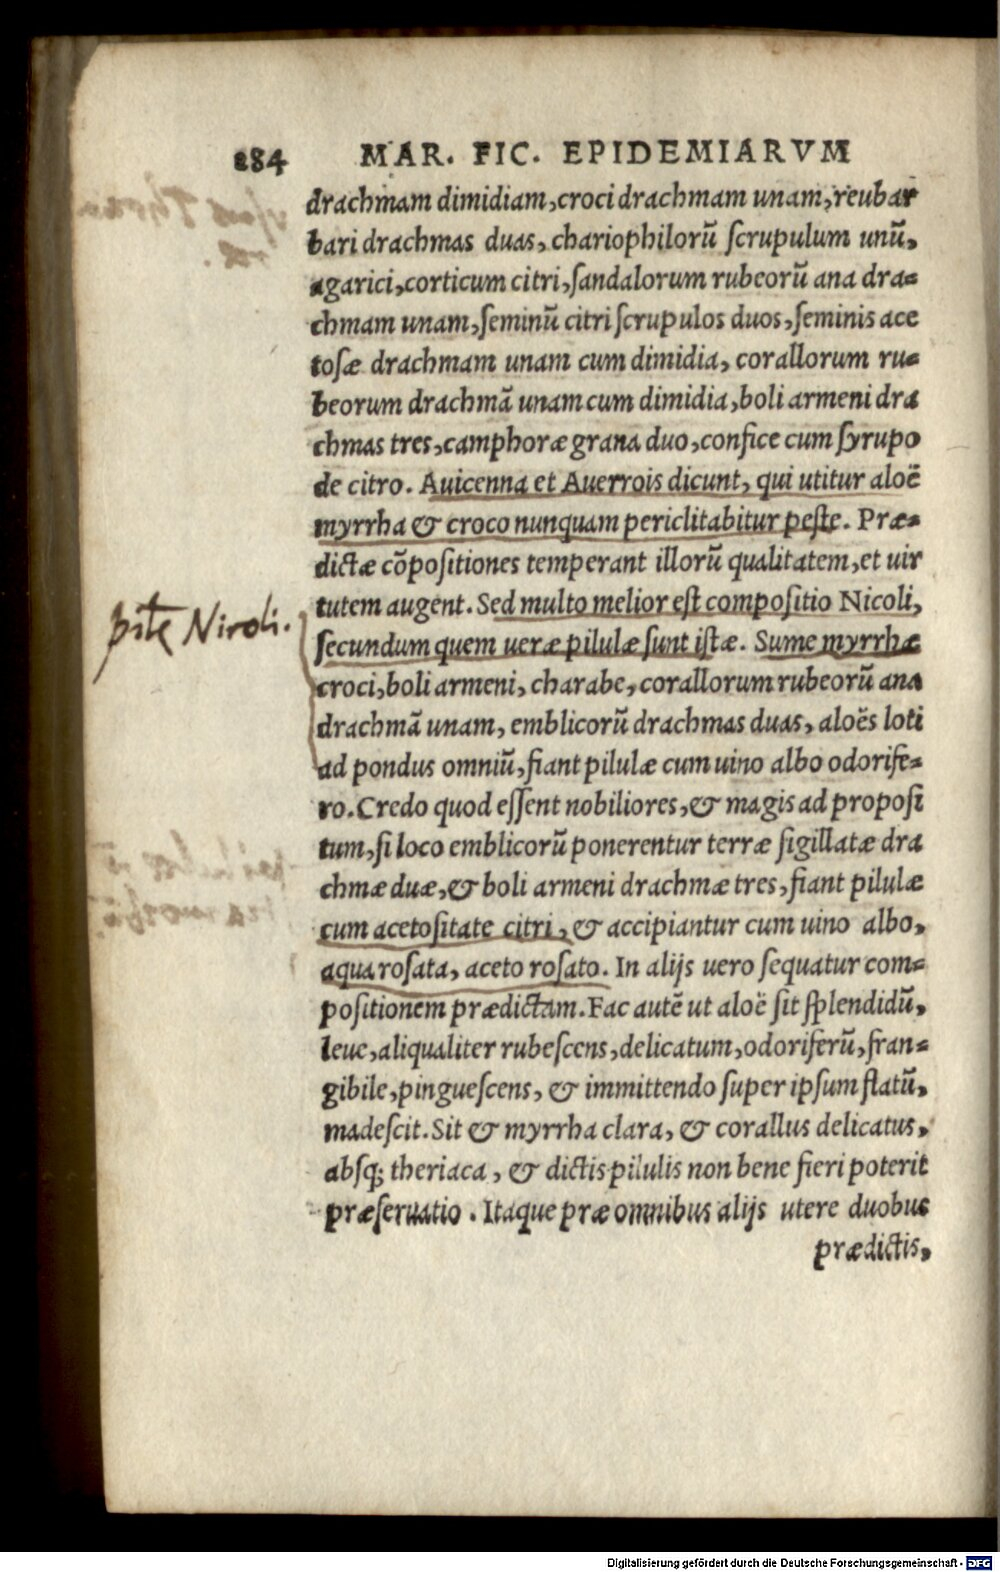 284 MAR. FIC. EPIDEMIARVM
drachmam dimidiam, croci drachmam unam, reubar
bari drachmas duas, chariophilorũ ſcrupulum unũ,
agarici, corticum citri, ſandalorum rubeorũ ana dra=
chmam unam, ſeminũ citri ſcrupulos duos, ſeminis ace
toſæ drachmam unam cum dimidia, corallorum ru=
beorum drachmã unam cum dimidia, boli armeni dra
chmas tres, camphoræ grana duo, confice cum ſyrupo
de citro. Auicenna et Auerrois dicunt, qui utitur aloë
myrrha & croco nunquam periclitabitur peſte. Præ=
dictæ cõpoſitiones temperant illorũ qualitatem, et uir
tutem augent. Sed multo melior eſt compoſitio Nicoli,
Nicoli.
ſecundum quem ueræ pilulæ ſunt iſtæ. Sume myrrhæ
croci, boli armeni, charabe, corallorum rubeorũ ana
drachmã unam, emblicorũ drachmas duas, aloës loti
ad pondus omniũ, fiant pilulæ cum uino albo odorife=
ro. Credo quod eſſent nobiliores, & magis ad propoſi
tum, ſi loco emblicorũ ponerentur terræ ſigillatæ dra
chmæ duæ, & boli armeni drachmæ tres, fiant pilulæ
cum acetoſitate citri, & accipiantur cum uino albo,
aqua roſata, aceto roſato. In alijs uero ſequatur com=
poſitionem prædictam. Fac autẽ ut aloë ſit ſplendidũ,
leue, aliqualiter rubeſcens, delicatum, odoriferũ, fran=
gibile, pingueſcens, & immittendo ſuper ipſum flatũ,
madeſcit. Sit & myrrha clara, & corallus delicatus,
abſq; theriaca, & dictis pilulis non bene fieri poterit
præſeruatio. Itaque præ omnibus alijs utere duobus
prædictis,
Digitalisierung gefördert durch die Deutsche Forschungsgemeinschaft - DFG